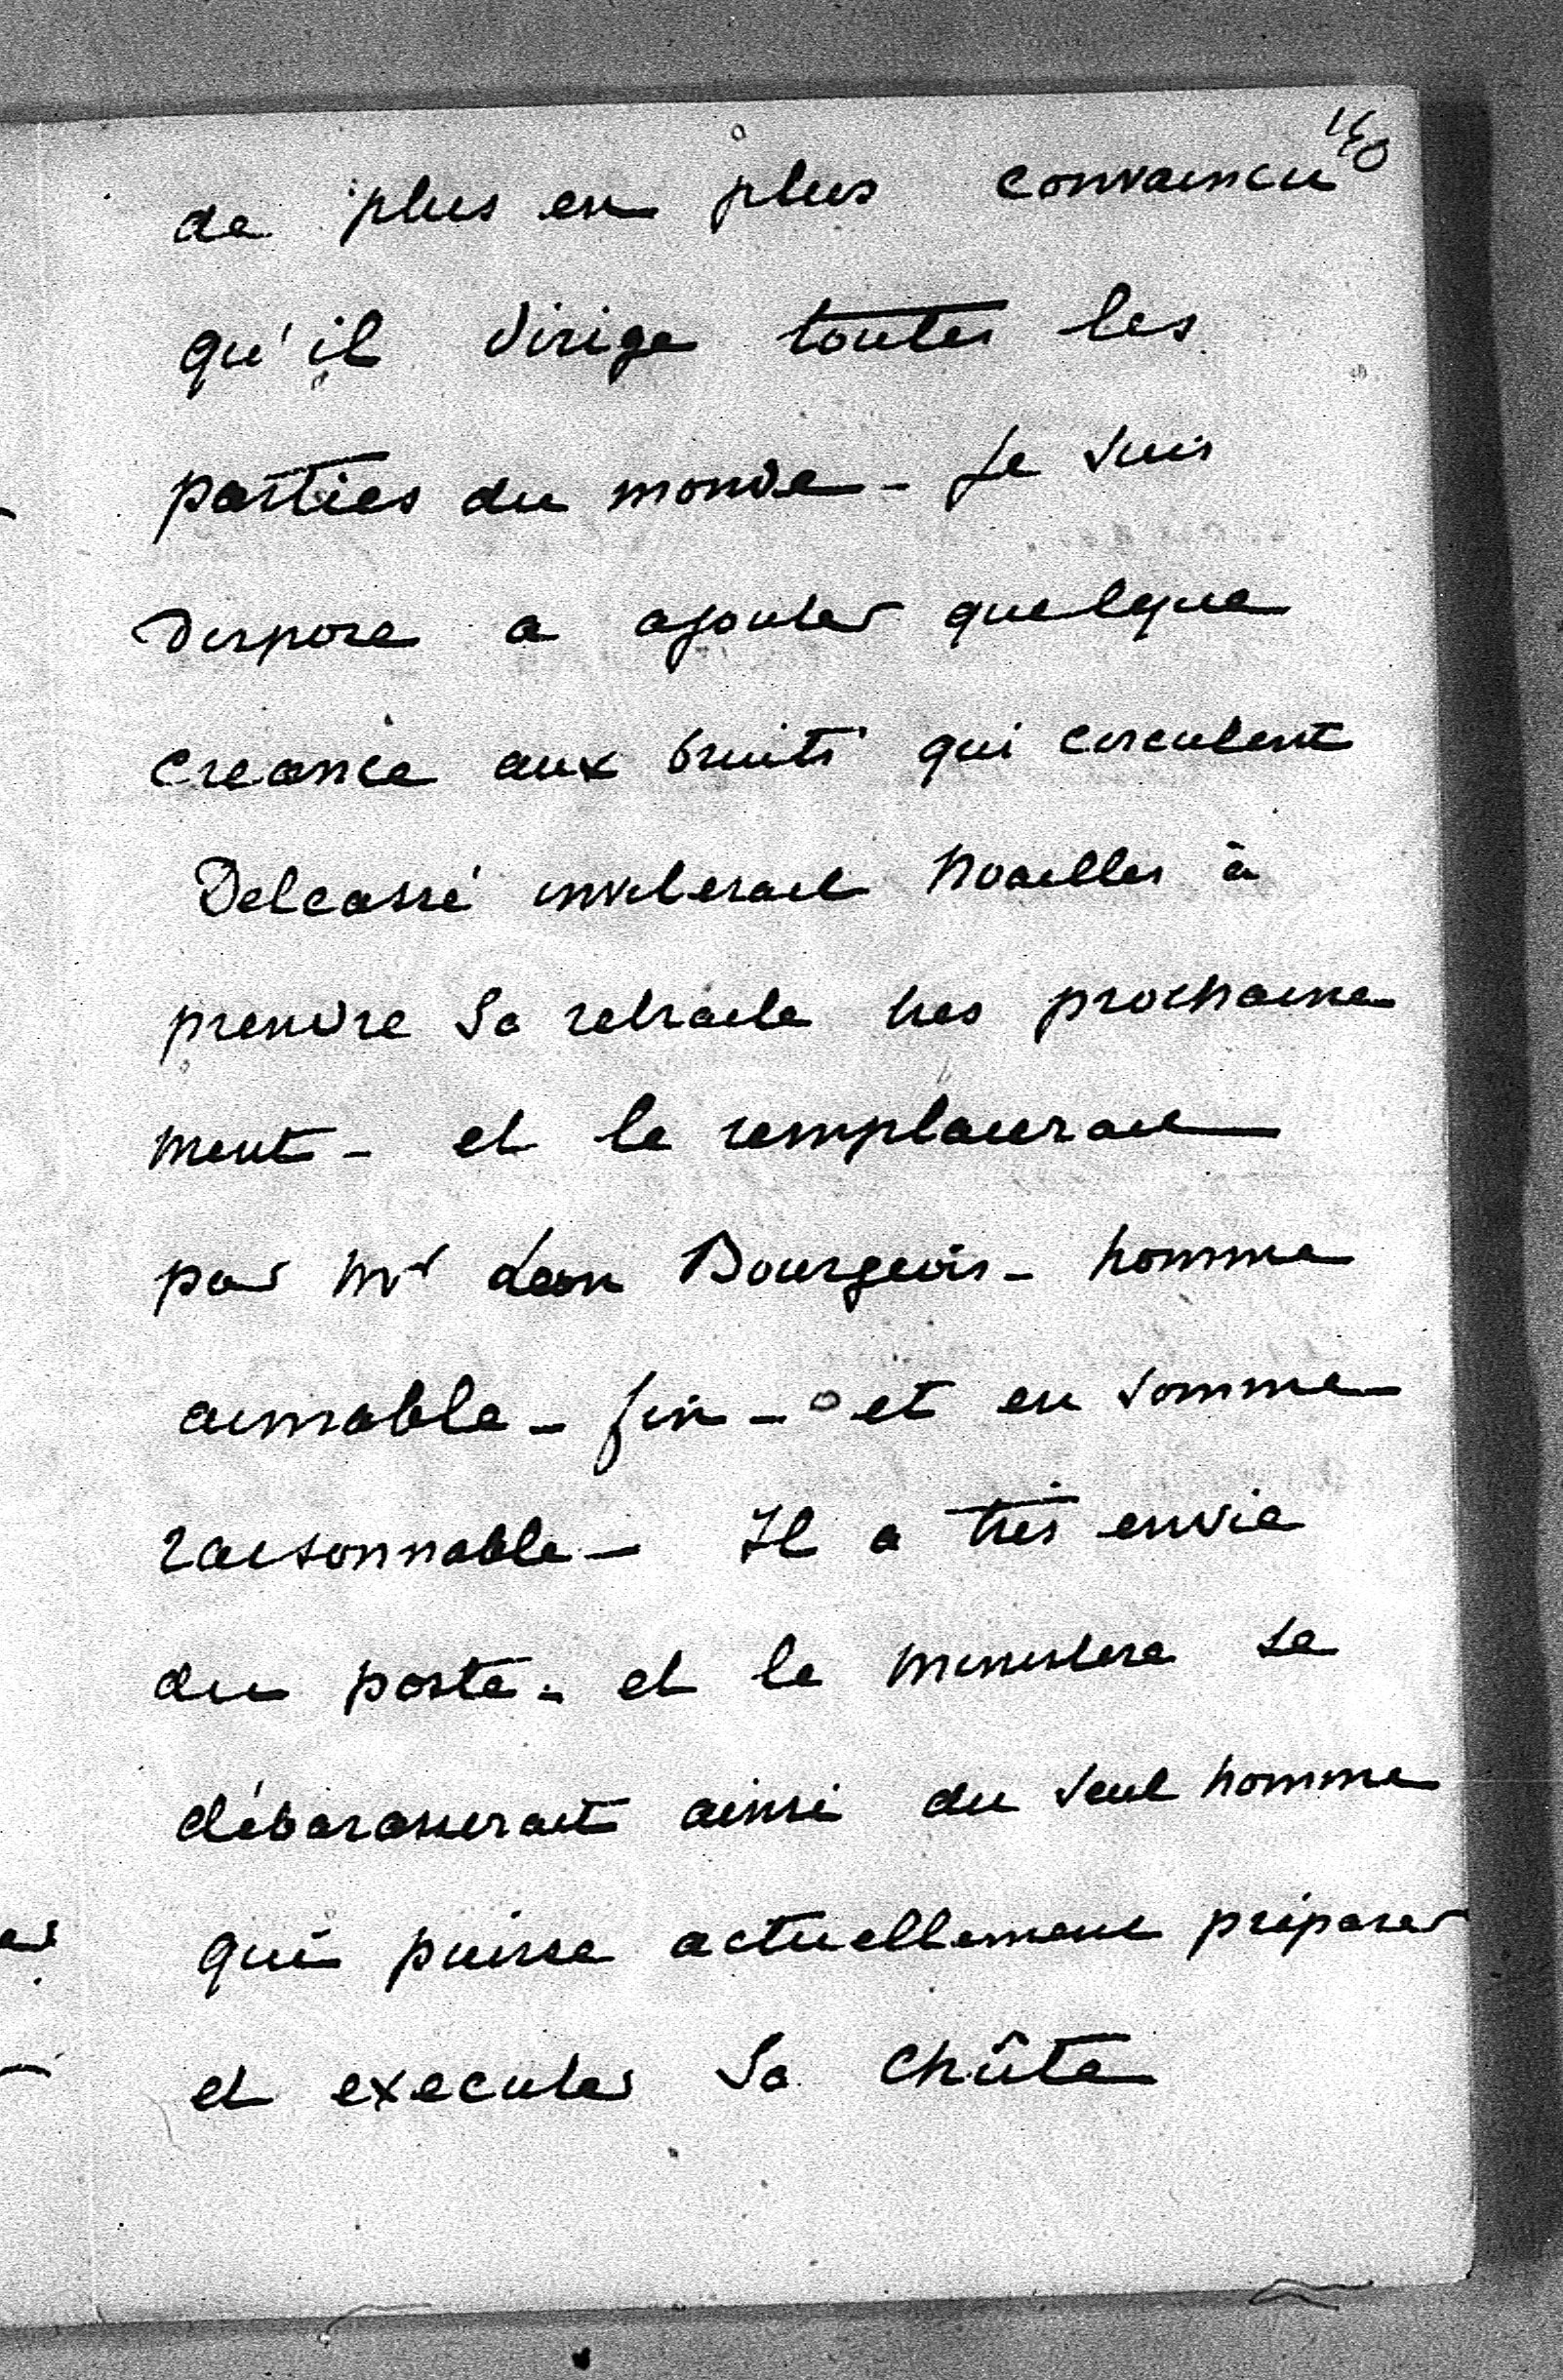 de plus en plus convaincu
qu'il dirige toutes les
parties du monde - Je suis
dispose a ajouter quelque
creance aux bruits qui circulent
Delcassé inviterait Noailles à
prendre sa retraite tres prochaine
ment - et le remplacerait
par Mr Leon Bourgeois - homme
aimable - fin - et en somme
raisonnable - Il a très envie
du poste - et le ministere se
débarasserait ainsi du seul homme
qui puisse actuellement préparer
et executer sa chûte